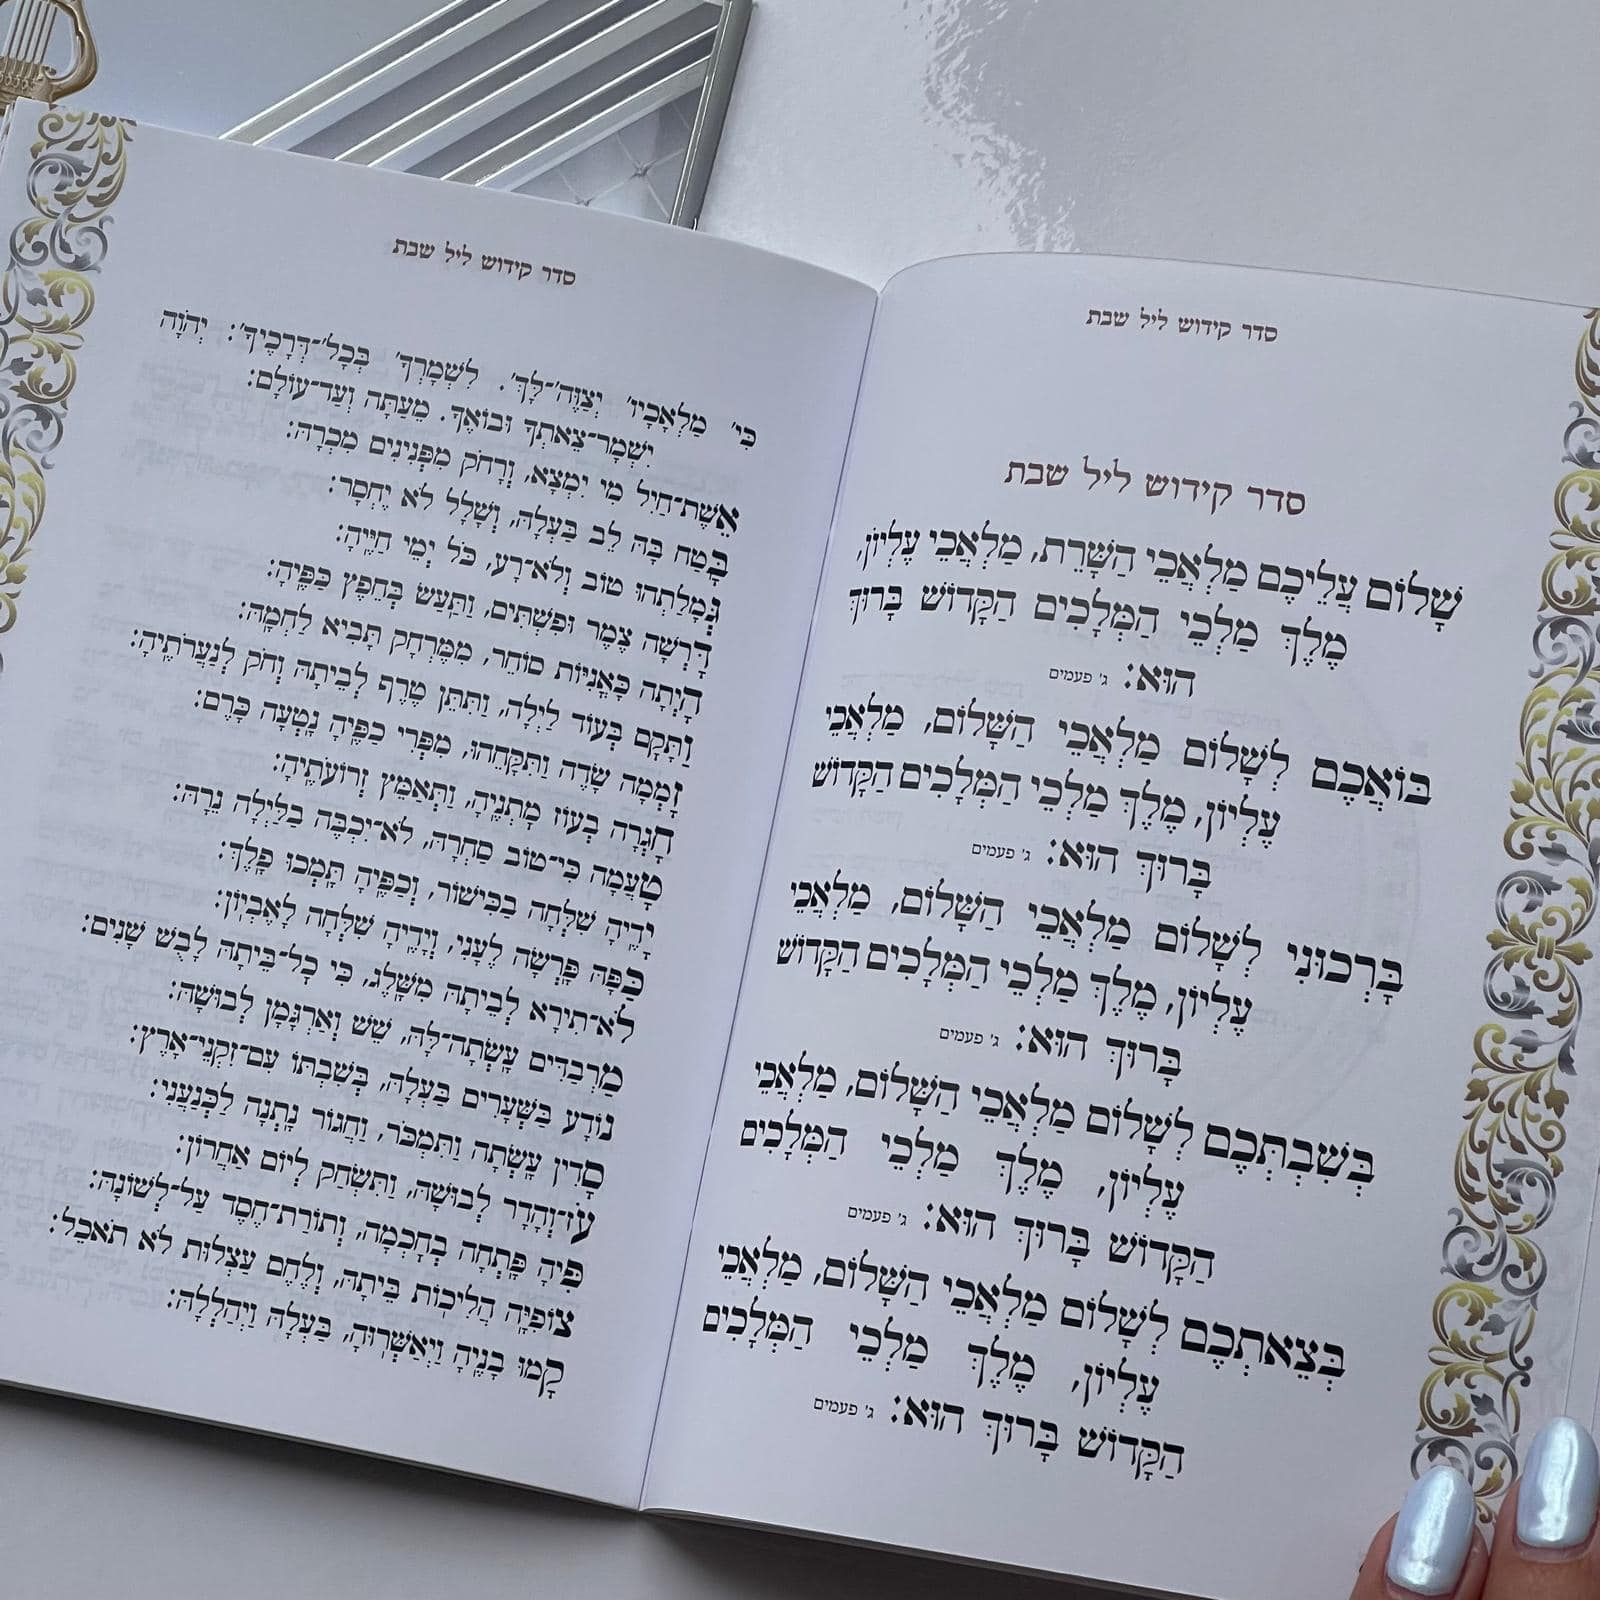 סדר קידוש ליל שבת
סדר קידוש ליל שבת
שָׁלוֹם עֲלֵיכֶם מַלְאֲכֵי הַשָּׁרֵת, מַלְאֲכֵי עֶלְיוֹן,
מֶלֶךְ מַלְכֵי הַמְּלָכִים הַקָּדוֹשׁ בָּרוּךְ
הוּא: ג' פעמים
בּוֹאֲכֶם לְשָׁלוֹם מַלְאֲכֵי הַשָּׁלוֹם, מַלְאֲכֵי
עֶלְיוֹן, מֶלֶךְ מַלְכֵי הַמְּלָכִים הַקָּדוֹשׁ
בָּרוּךְ הוּא: ג' פעמים
בָּרְכוּנִי לְשָׁלוֹם מַלְאֲכֵי הַשָּׁלוֹם, מַלְאֲכֵי
עֶלְיוֹן, מֶלֶךְ מַלְכֵי הַמְּלָכִים הַקָּדוֹשׁ
בָּרוּךְ הוּא: ג' פעמים
בְּשִׁבְתְּכֶם לְשָׁלוֹם מַלְאֲכֵי הַשָּׁלוֹם, מַלְאֲכֵי
עֶלְיוֹן, מֶלֶךְ מַלְכֵי הַמְּלָכִים
הַקָּדוֹשׁ בָּרוּךְ הוּא: ג' פעמים
בְּצֵאתְכֶם לְשָׁלוֹם מַלְאֲכֵי הַשָּׁלוֹם, מַלְאֲכֵי
עֶלְיוֹן, מֶלֶךְ מַלְכֵי הַמְּלָכִים
הַקָּדוֹשׁ בָּרוּךְ הוּא: ג' פעמים
סדר קידוש ליל שבת
כִּי' מַלְאָכָיו' יְצַוֶּה'־לָּךְ'. לִשְׁמָרְךָ' בְּכָל'־דְּרָכֶיךָ': יְהֹוָה
יִשְׁמָר־צֵאתְךָ וּבוֹאֶךָ. מֵעַתָּה וְעַד־עוֹלָם:
אֵשֶׁת־חַיִל מִי יִמְצָא, וְרָחֹק מִפְּנִינִים מִכְרָהּ:
בָּטַח בָּהּ לֵב בַּעְלָהּ, וְשָׁלָל לֹא יֶחְסָר:
גְּמָלַתְהוּ טוֹב וְלֹא־רָע, כֹּל יְמֵי חַיֶּיהָ:
דָּרְשָׁה צֶמֶר וּפִשְׁתִּים, וַתַּעַשׂ בְּחֵפֶץ כַּפֶּיהָ:
הָיְתָה כָּאֳנִיּוֹת סוֹחֵר, מִמֶּרְחָק תָּבִיא לַחְמָהּ:
וַתָּקָם בְּעוֹד לַיְלָה, וַתִּתֵּן טֶרֶף לְבֵיתָהּ וְחֹק לְנַעֲרֹתֶיהָ:
זָמְמָה שָׂדֶה וַתִּקָּחֵהוּ, מִפְּרִי כַפֶּיהָ נָטְעָה כָּרֶם:
חָגְרָה בְעוֹז מָתְנֶיהָ, וַתְּאַמֵּץ זְרוֹעֹתֶיהָ:
טָעֲמָה כִּי־טוֹב סַחְרָהּ, לֹא־יִכְבֶּה בַלַּיְלָה נֵרָהּ:
יָדֶיהָ שִׁלְּחָה בַכִּישׁוֹר, וְכַפֶּיהָ תָּמְכוּ פָלֶךְ:
כַּפָּהּ פָּרְשָׂה לֶעָנִי, וְיָדֶיהָ שִׁלְּחָה לָאֶבְיוֹן:
לֹא־תִירָא לְבֵיתָהּ מִשָּׁלֶג, כִּי כָל־בֵּיתָהּ לָבֻשׁ שָׁנִים:
מַרְבַדִּים עָשְׂתָה־לָּהּ, שֵׁשׁ וְאַרְגָּמָן לְבוּשָׁהּ:
נוֹדָע בַּשְּׁעָרִים בַּעְלָהּ, בְּשִׁבְתּוֹ עִם־זִקְנֵי־אָרֶץ:
סָדִין עָשְׂתָה וַתִּמְכֹּר, וַחֲגוֹר נָתְנָה לַכְּנַעֲנִי:
עֹז־וְהָדָר לְבוּשָׁהּ, וַתִּשְׂחַק לְיוֹם אַחֲרוֹן:
פִּיהָ פָּתְחָה בְחָכְמָה, וְתוֹרַת־חֶסֶד עַל־לְשׁוֹנָהּ:
צוֹפִיָּה הֲלִיכוֹת בֵּיתָהּ, וְלֶחֶם עַצְלוּת לֹא תֹאכֵל:
קָמוּ בָנֶיהָ וַיְאַשְּׁרוּהָ, בַּעְלָהּ וַיְהַלְלָהּ: